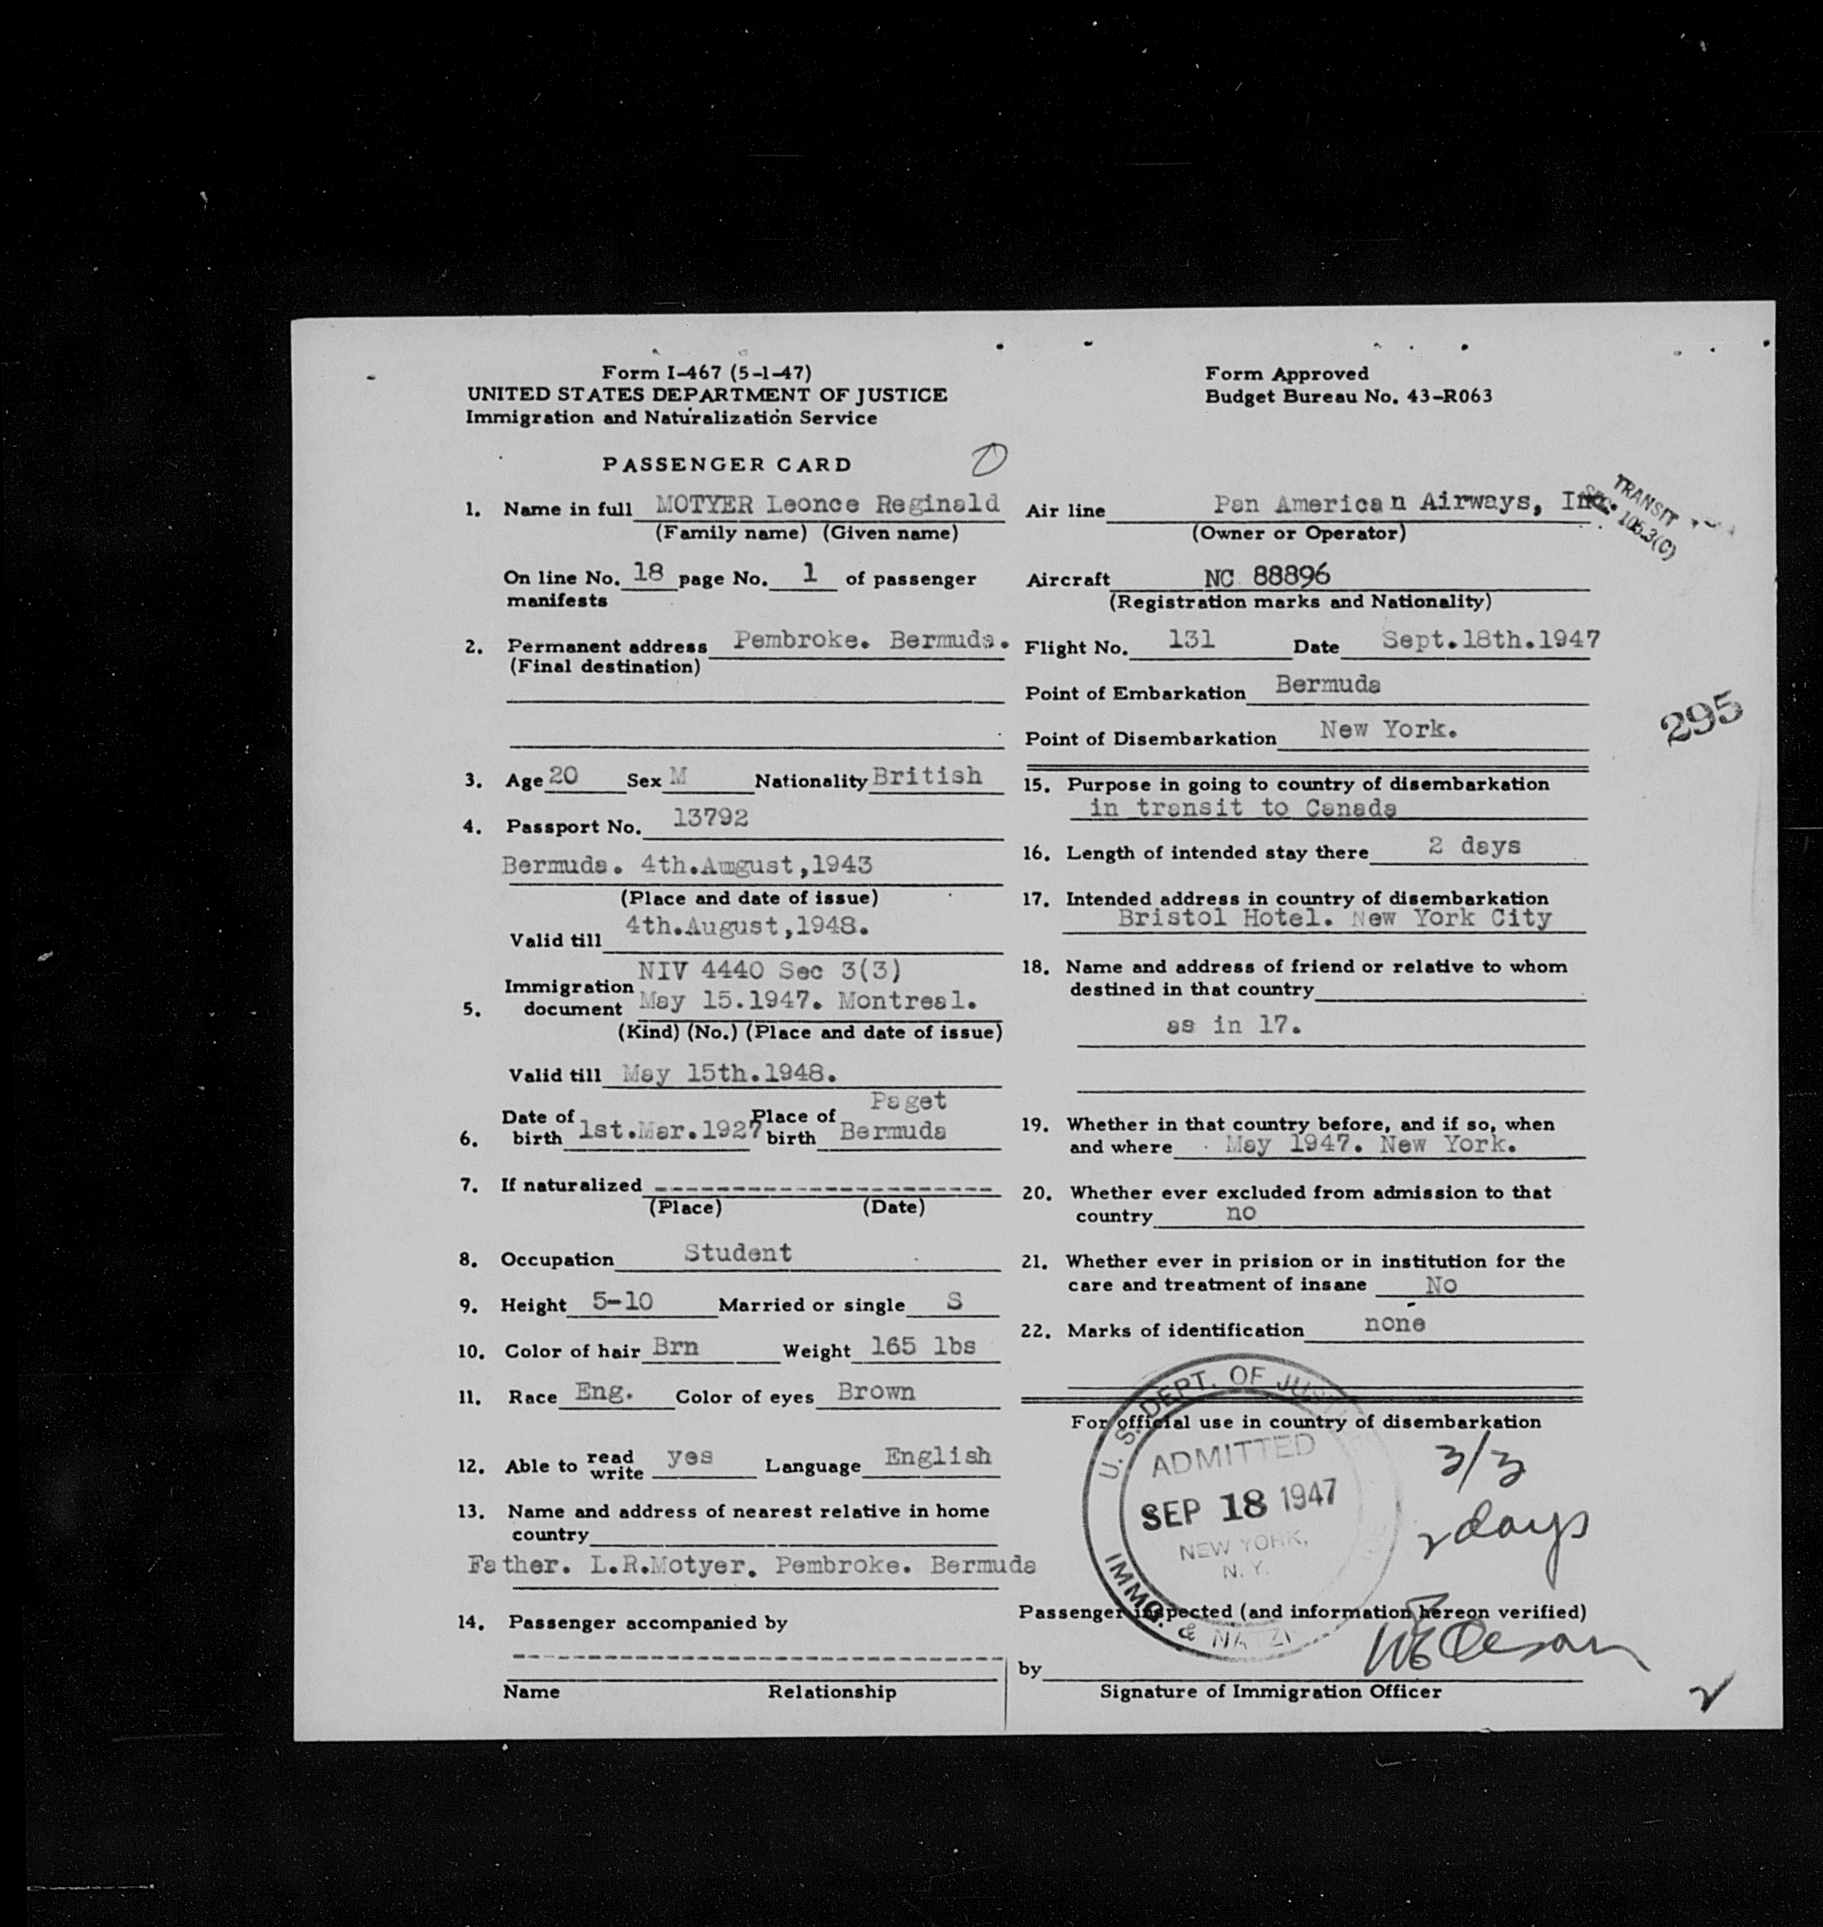 Form I-467 (5-1-47)
UNITED STATES DEPARTMENT OF JUSTICE
Immigration and Naturalization Service
PASSENGER CARD
1. Name in full MOTYER Leonce Reginald
(Family name) (Given name)
On line No. 18 page No. 1 of passenger
manifests
2. Permanent address Pembroke. Bermuda.
(Final destination)
3. Age 20 Sex M Nationality British
4. Passport No. 13792
Bermuda. 4th.Amgust,1943
(Place and date of issue)
4th.August,1948.
Valid till
NIV 4440 Sec 3(3)
Immigration
5. document May 15.1947. Montreal.
(Kind) (No.) (Place and date of issue)
Valid till May 15th.1948.
Paget
Date of Place of
6. birth 1st.Mar.1927 birth Bermuda
7. If naturalized
(Place) (Date)
8. Occupation Student
9. Height 5-10 Married or single S
10. Color of hair Brn Weight 165 lbs
11. Race Eng. Color of eyes Brown
12. Able to read write yes Language English
13. Name and address of nearest relative in home
country
Father. L.R.Motyer. Pembroke. Bermuda
14. Passenger accompanied by
Name Relationship
Form Approved
Budget Bureau No. 43-R063
Air line Pan American Airways, Inc.
(Owner or Operator)
TRANSIT
SEC. 105.3(C)
Aircraft NC 88896
(Registration marks and Nationality)
Flight No. 131 Date Sept.18th.1947
Point of Embarkation Bermuda
295
Point of Disembarkation New York.
15. Purpose in going to country of disembarkation
in transit to Canada
16. Length of intended stay there 2 days
17. Intended address in country of disembarkation
Bristol Hotel. New York City
18. Name and address of friend or relative to whom
destined in that country
as in 17.
19. Whether in that country before, and if so, when
and where May 1947. New York.
20. Whether ever excluded from admission to that
country no
21. Whether ever in prision or in institution for the
care and treatment of insane No
22. Marks of identification none
For official use in country of disembarkation
U. S. DEPT. OF JUST
ADMITTED
SEP 18 1947
NEW YORK,
N. Y.
IMMG. & NATZ
3/3
2 days
Passenger inspected (and information hereon verified)
by
Signature of Immigration Officer